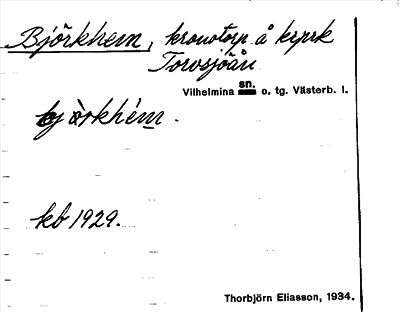 Björkhem, kronotorp å krprk
Torvsjöån
Vilhelmina sn. o. tg. Västerb. l.
bjòrkhém.
kb 1929.
Thorbjörn Eliasson, 1934.